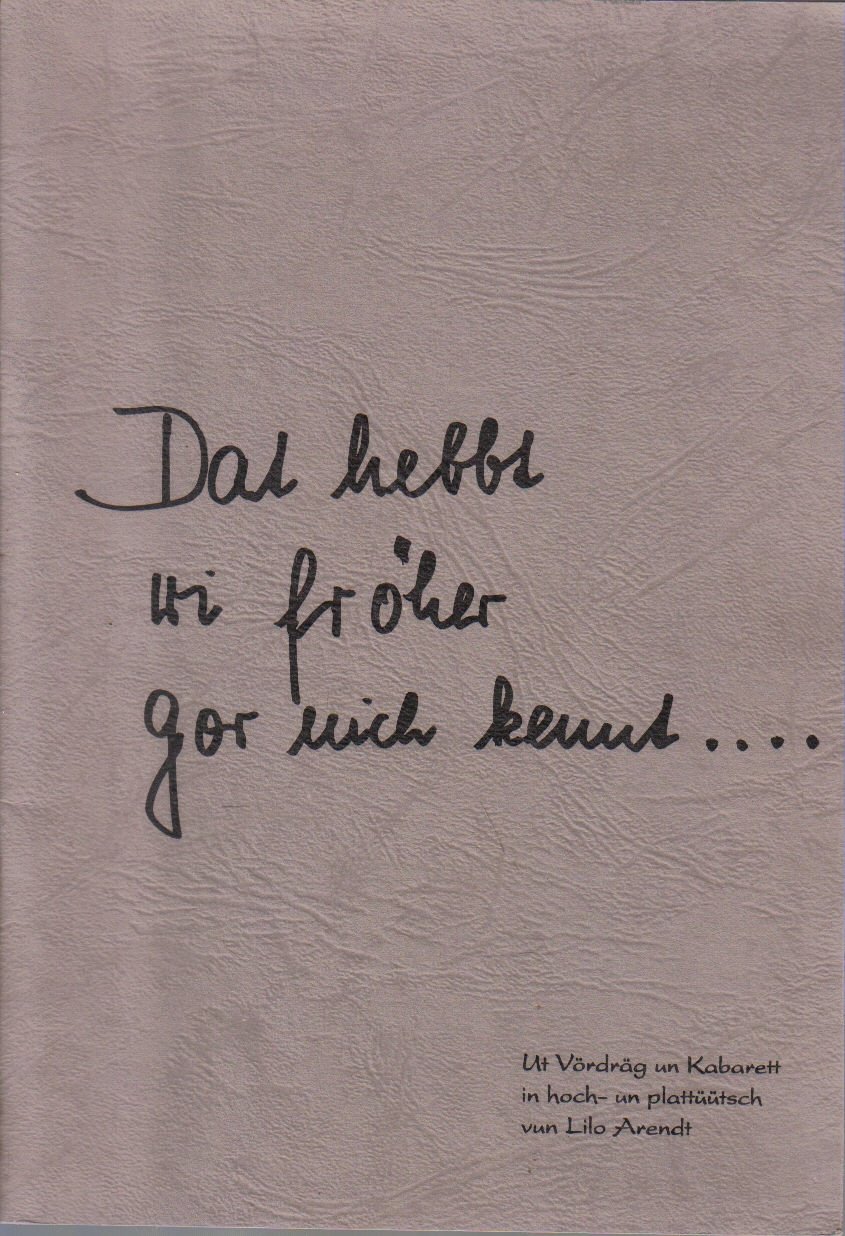 Dat hebbt
wi fröher
gor nich kennt....
Ut Vördräg un Kabarett
in hoch- un plattüütsch
vun Lilo Arendt